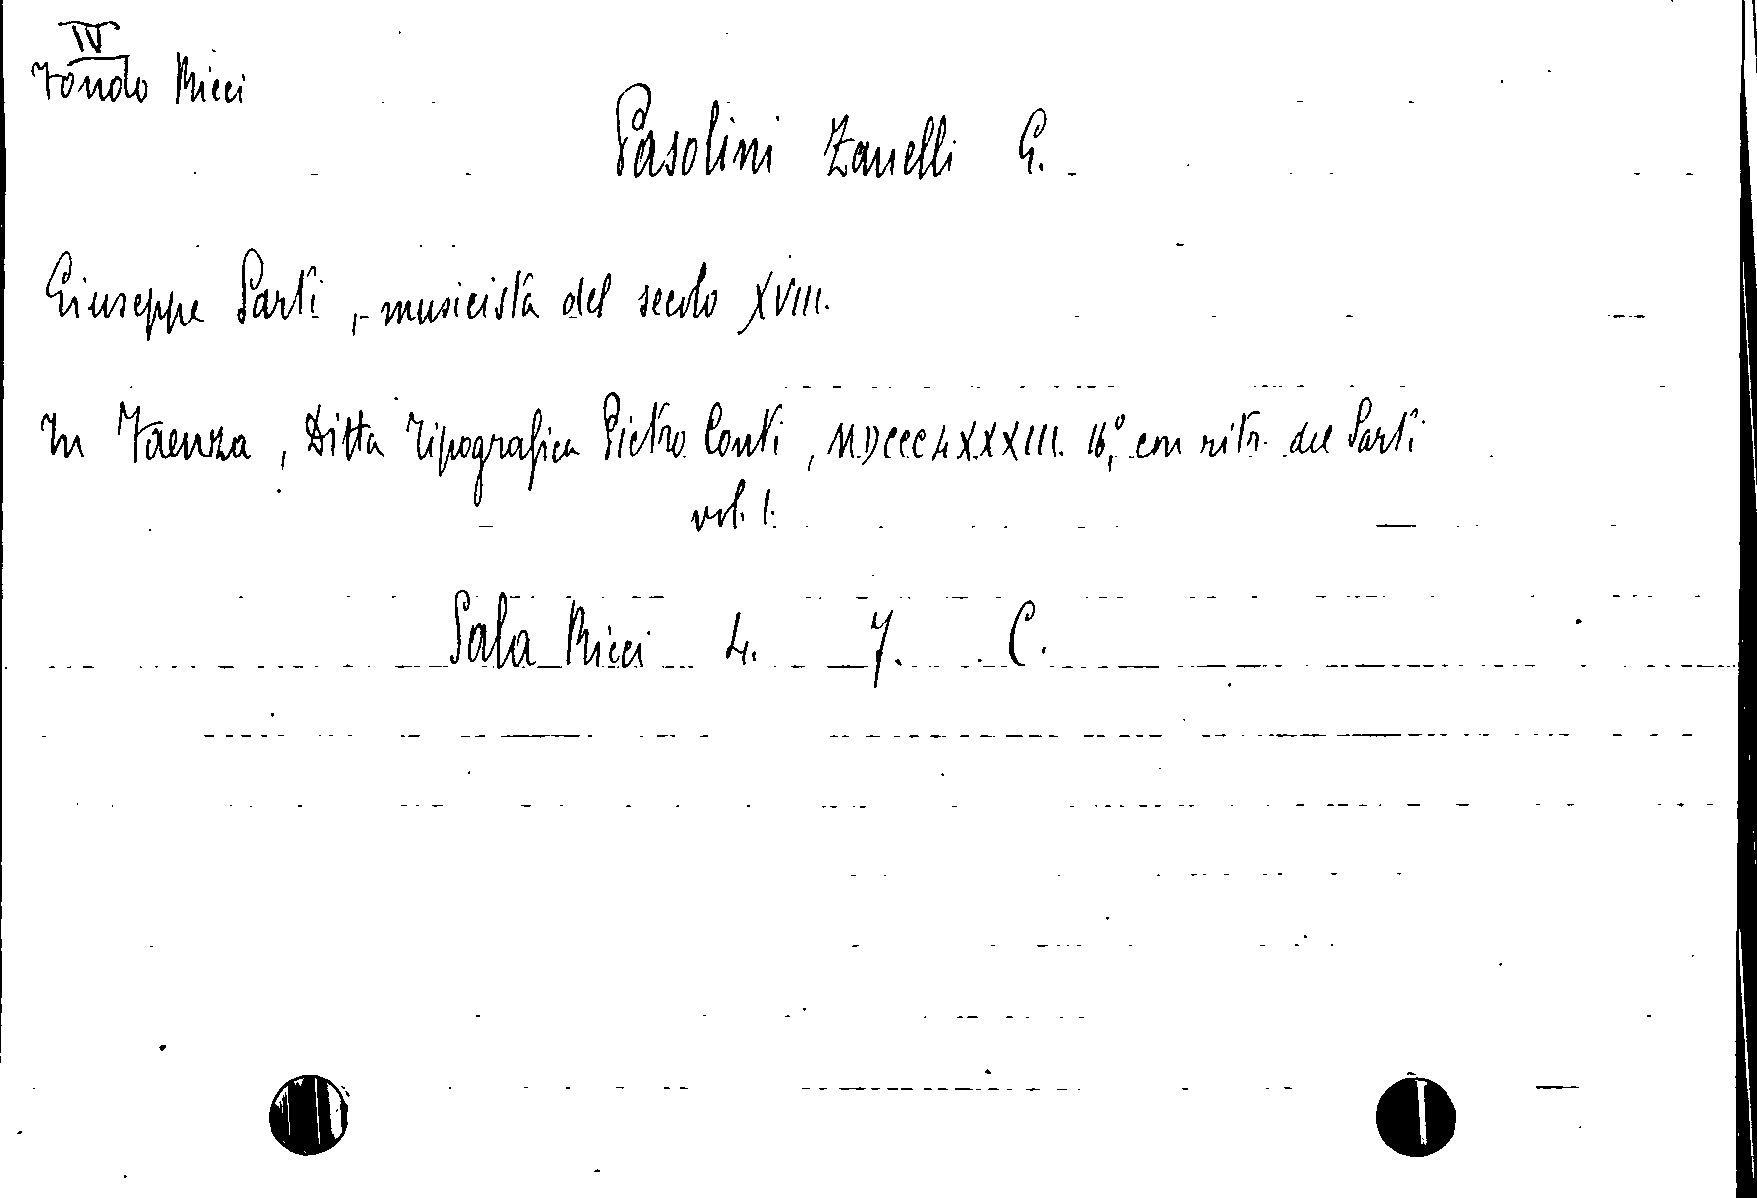 IV
Fondo Ricci
Pasolini Zanelli G.
Giuseppe Sarti, - musicista del secolo XVIII.
In Faenza, Ditta Tipografica Pietro Conti, MDCCCLXXXIII. 16°, con ritr. del Sarti
vol. 1.
Sala Ricci 4. 7. C.